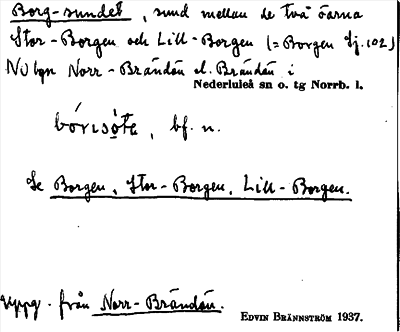 Borg-sundet, sund mellan de två öarna
Stor-Borgen och Lill-Borgen (= Borgen Sj. 102)
NO byn Norr-Brändön el. Brändön i
Nederluleå sn o. tg Norrb. l.
bf. n.
Se Borgen, Stor-Borgen, Lill-Borgen.
Uppg. från Norr-Brändön.
EDVIN BRÄNNSTRÖM 1937.